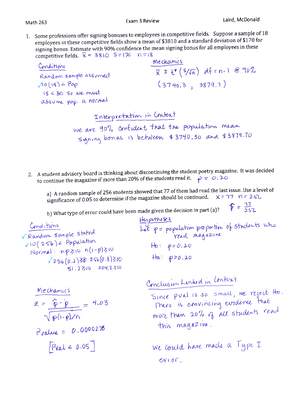 Math 263
Exam 3 Review
Laird, McDonald
1. Some professions offer signing bonuses to employees in competitive fields. Suppose a sample of 18
employees in these competitive fields show a mean of $3810 and a standard deviation of $170 for
signing bonus. Estimate with 90% confidence the mean signing bonus for all employees in these
competitive fields. x̄ = 3810 s=170 n=18
Conditions
Random sample assumed
✓ 10(18) < Pop
18 < 30 so we must
assume pop. is normal
Mechanics
x̄ ± t* (s/√n) df = n-1 @ 90%
(3740.3, 3879.7)
Interpretation in Context
We are 90% confident that the population mean
signing bonus is between $3740.30 and $3879.70
2. A student advisory board is thinking about discontinuing the student poetry magazine. It was decided
to continue the magazine if more than 20% of the students read it. p = 0.20
a) A random sample of 256 students showed that 77 of them had read the last issue. Use a level of
significance of 0.05 to determine if the magazine should be continued. x=77 n=256
b) What type of error could have been made given the decision in part (a)?
Conditions
✓ Random Sample stated
✓ 10(256) < Population
Normal np≥10 n(1-p)≥10
Hypotheses
Let p = population proportion of students who
read magazine
Ho: p=0.20
Ha: p>0.20
Mechanics
z = p̂ - p = 4.03
√p(1-p)/n
Pvalue = 0.0000278
[Pval < 0.05]
Conclusion Linked in Context
Since pval is so small, we reject Ho.
There is convincing evidence that
more than 20% of all students read
this magazine.
We could have made a Type I
error.